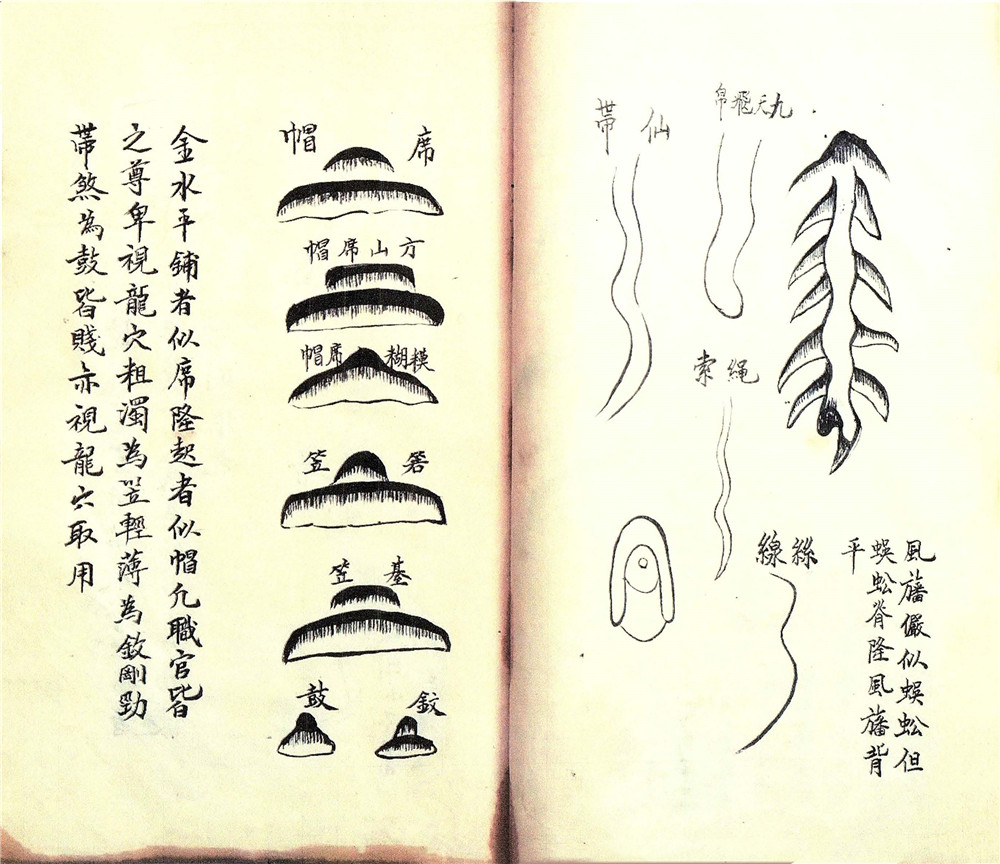 九天飛帛
仙帶
繩索
絲線
風旛儼似蜈蚣但
蜈蚣脊隆風旛背
平
席帽
方山席帽
模糊席帽
箬笠
基笠
鈸鼓
金水平鋪者似席隆起者似帽凢職官皆
之尊卑視龍穴粗濁為笠輕薄為鈸剛勁
帶煞為鼓皆賤亦視龍穴取用